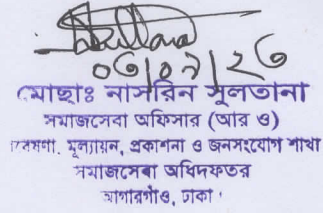 ০৩/০৭/২৩
মোছাঃ নাসরিন সুলতানা
সমাজসেবা অফিসার (আর ও)
গবেষণা, মূল্যায়ন, প্রকাশনা ও জনসংযোগ শাখা
সমাজসেবা অধিদফতর
আগারগাঁও, ঢাকা।